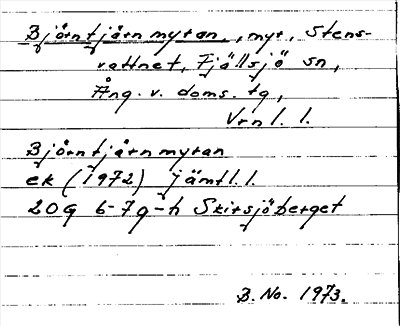 Björntjärnmyran, myr, Stens-
vattnet, Fjällsjö sn,
Ång. v. doms. tg,
Vrnl. l.
Björntjärnmyran
ek (1972) jämtl. l.
20G 6-7g-h Skirsjöberget
B. No. 1973.